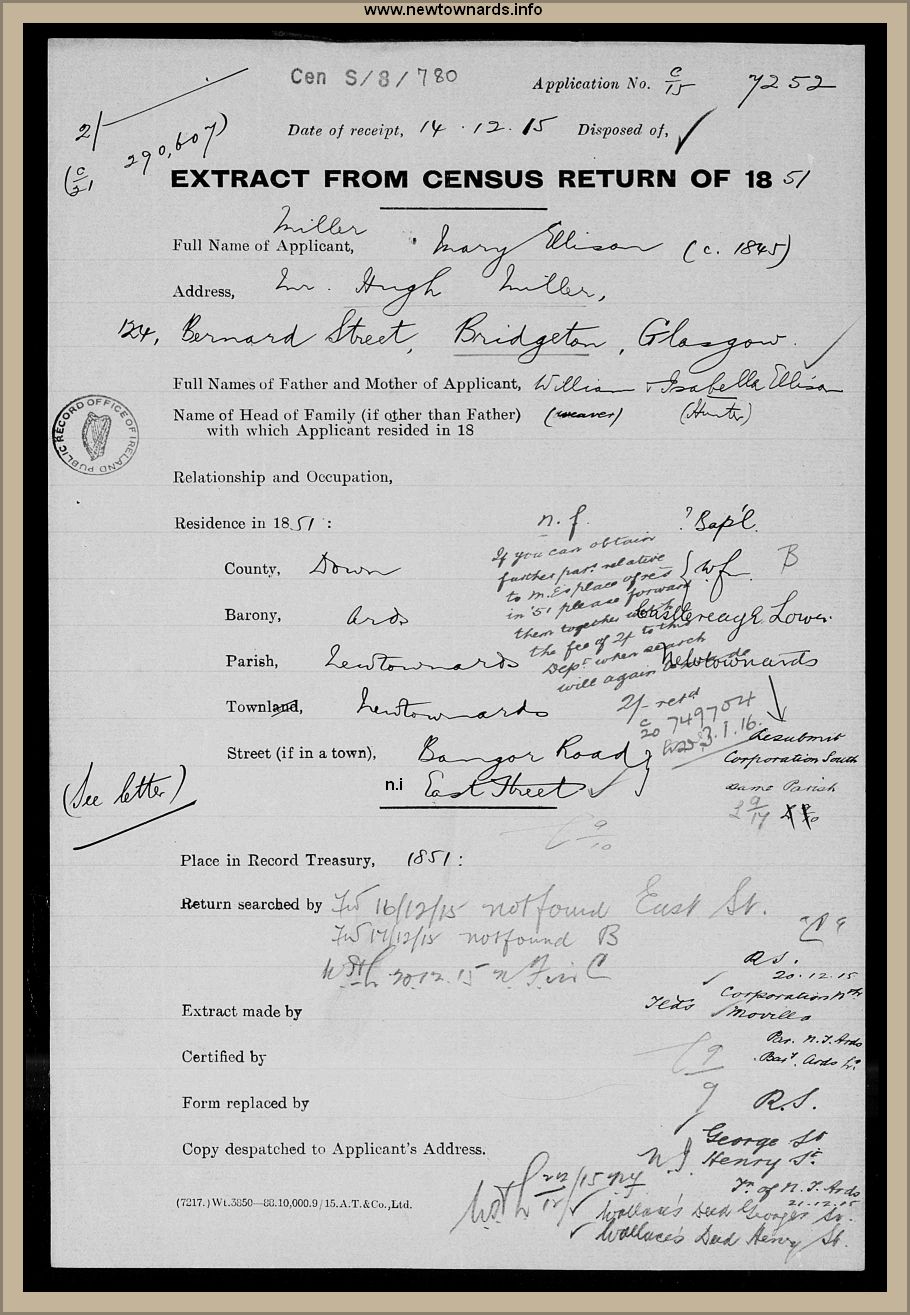 www.newtownards.info
Cen S/8/780
Application No. C/15 7252
2/
(C/21 290,607)
Date of receipt, 14.12.15 Disposed of, ✓
EXTRACT FROM CENSUS RETURN OF 1851
Miller
Full Name of Applicant, Mary Ellison (c. 1845)
Address, Mr. Hugh Miller,
124, Bernard Street, Bridgeton, Glasgow.
Full Names of Father and Mother of Applicant, William & Isabella Ellison
Name of Head of Family (if other than Father) (weaver) (Hunter)
with which Applicant resided in 18
PUBLIC RECORD OFFICE OF IRELAND
Relationship and Occupation,
Residence in 1851 : n.f. ? Bap'l.
County, Down
Barony, Ards
Parish, Newtownards
Townland, Newtownards
Street (if in a town), Bangor Road
n.i East Street
If you can obtain
further par. relative
to M. E's place of res
in '51 please forward
them together with
the fee of 2/ to this
Dept. when search
will again be made
n.f. B
Castlereagh Lower
Newtownards
2/- retd
C/20 749704
3.1.16.
Resubmit
Corporation South
same Parish
(See letter)
Place in Record Treasury, 1851 :
Return searched by 16/12/15 not found East St.
17/12/15 not found B
20.12.15 C
R.S.
20.12.15
Corporation Nth
Movilla
Par. N.T. Ards
Bar. Ards Lr.
Extract made by
Certified by
Form replaced by R.S.
Copy despatched to Applicant's Address.
George St
Henry St.
Tn. of N. T. Ards
21.12.15
22/12/15
Wallace's Decd Georges St.
Wallace's Decd Henry St.
(7217.) Wt.3850—88.10,000.9/15. A.T.&Co., Ltd.